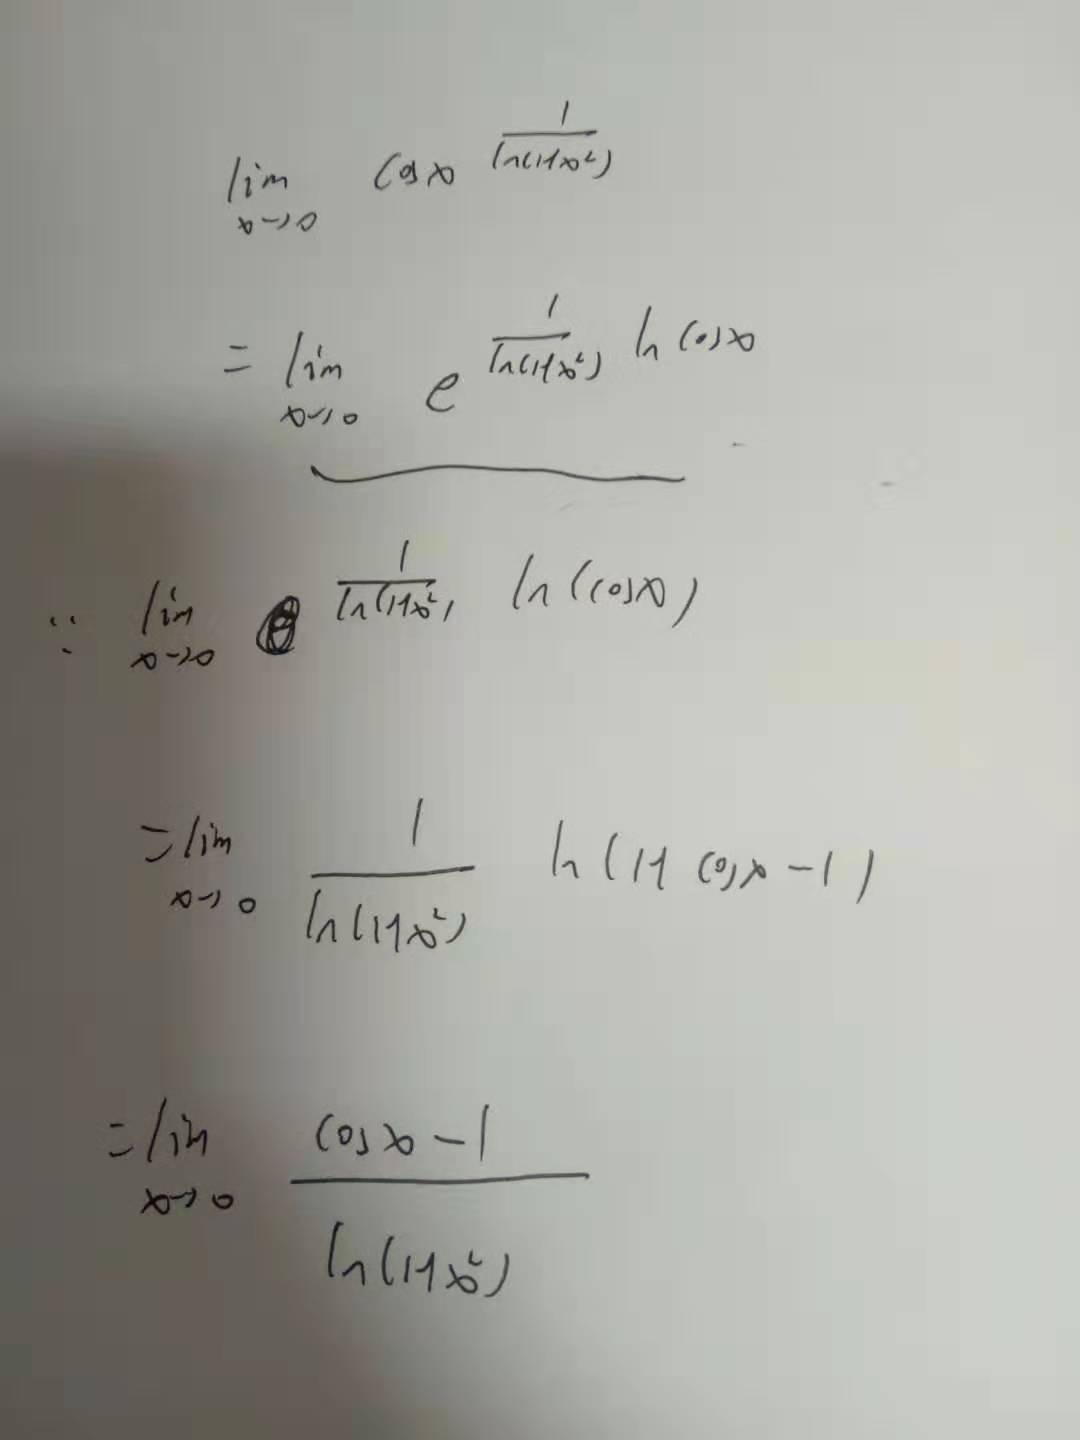 lim x→0 cosx^(1/ln(1+x²))
= lim x→0 e^(1/ln(1+x²) ln cosx)
∵ lim x→0 1/ln(1+x²) ln(cosx)
= lim x→0 1/ln(1+x²) ln(1+cosx-1)
= lim x→0 (cosx-1)/ln(1+x²)